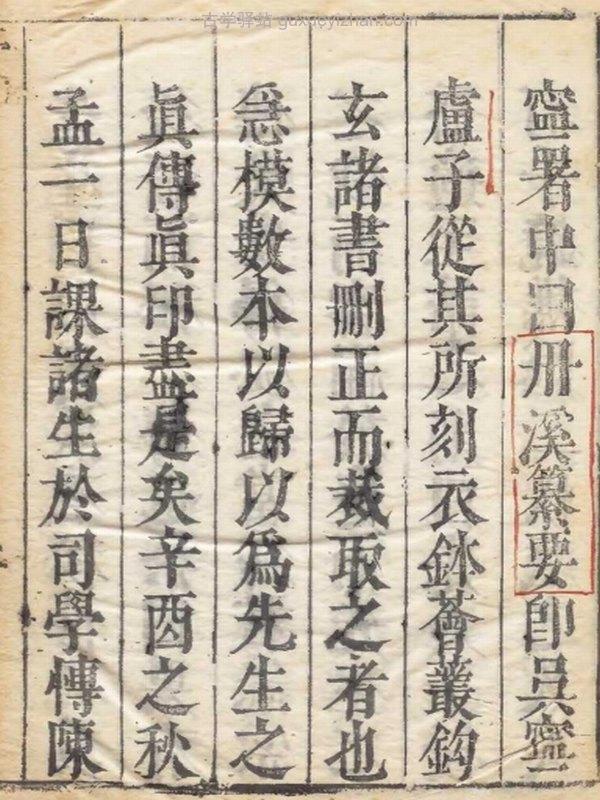 古学驿站 guxueyizhan.com
寧署中曰丹溪纂要即吳寧
盧子從其所刻衣鉢薈叢鈎
玄諸書刪正而裁取之者也
急模數本以歸以爲先生之
眞傳眞印盡是矣辛酉之秋
孟二日課諸生於司學傳陳